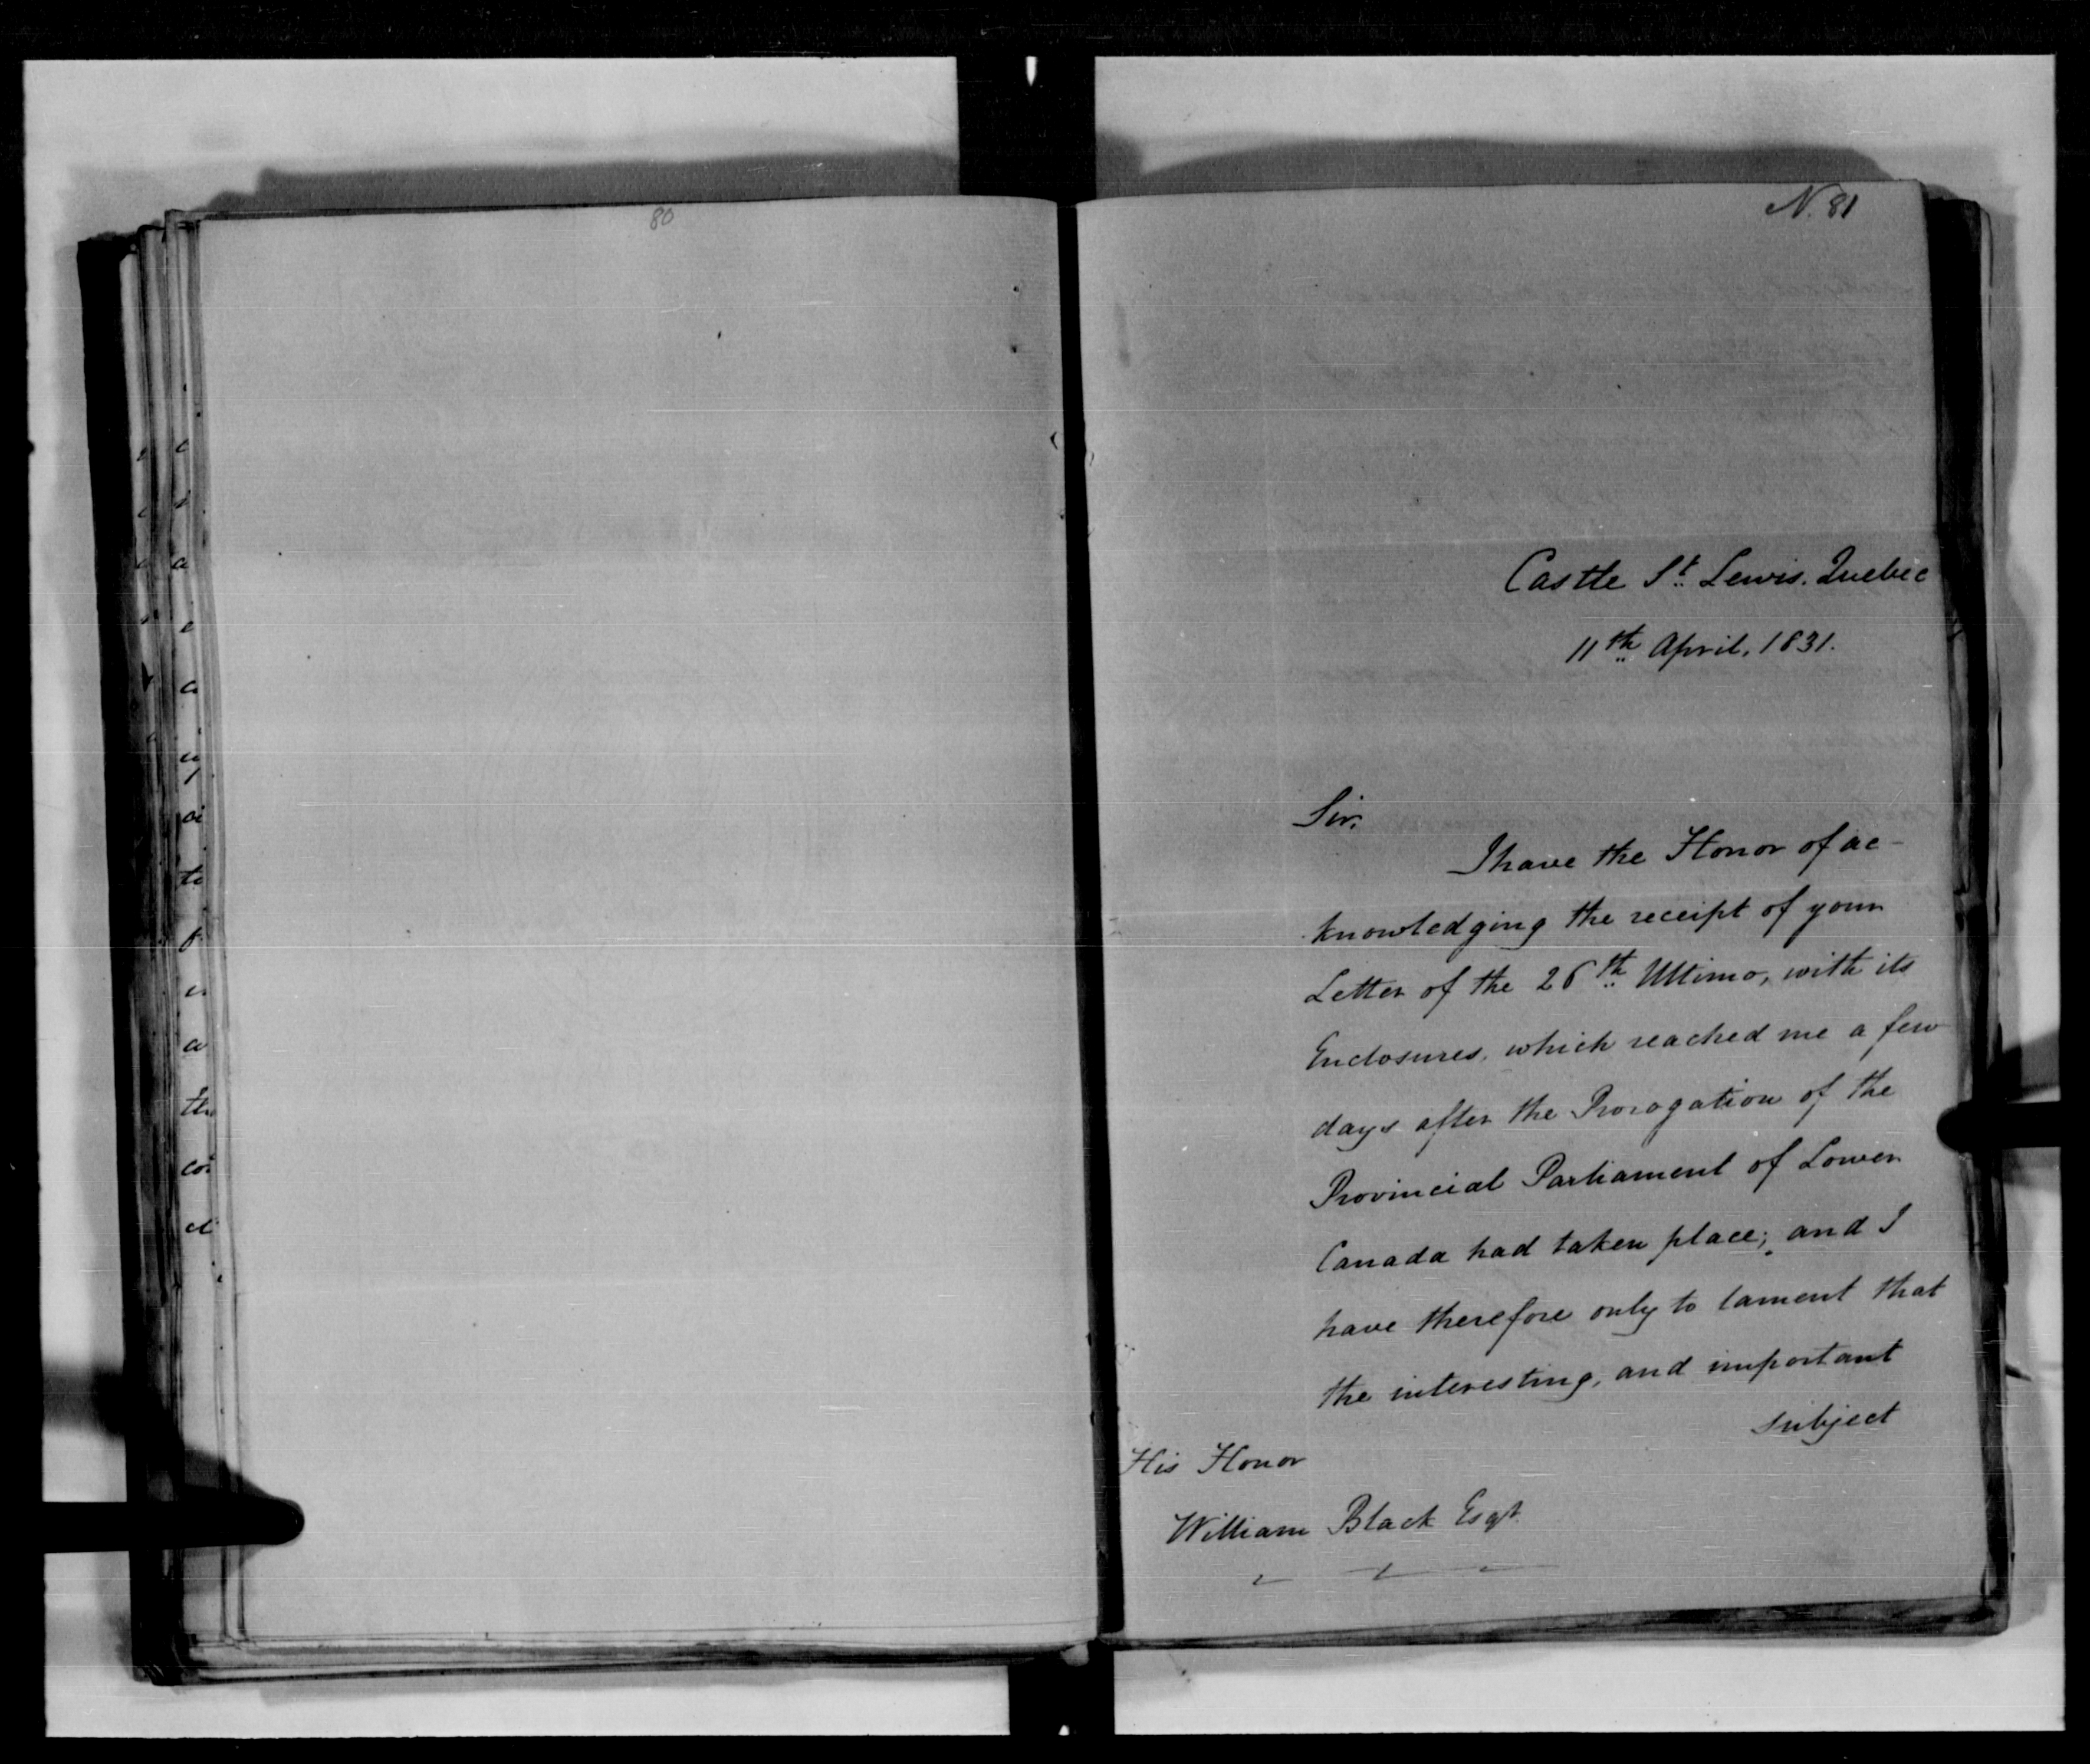 80
N. 81
Castle St. Lewis. Quebec
11th April, 1831.
Sir,
I have the Honor of ac-
knowledging the receipt of your
Letter of the 26th Ultimo, with its
Enclosures, which reached me a few
days after the Prorogation of the
Provincial Parliament of Lower
Canada had taken place; and I
have therefore only to lament that
the interesting, and important
subject
His Honor
William Black Esqr.